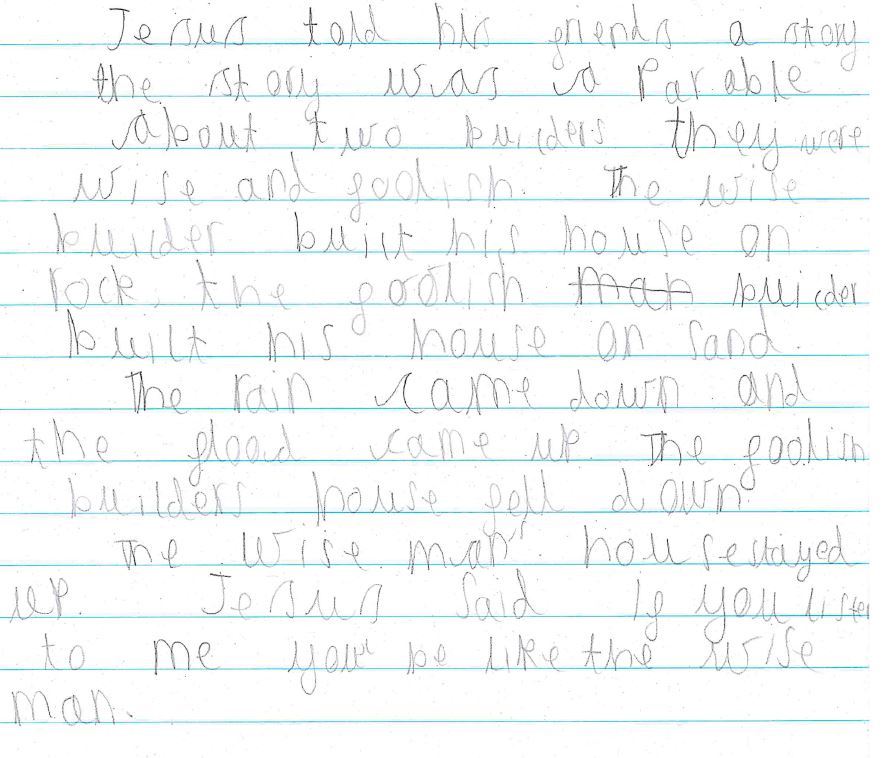 Jesus told his friends a story
the story was a Parable
About two buiders they were
wise and foolish. The wise
buider built his house on
rock, the foolish man buider
built his house on sand.
The rain came down and
the flood came up. The foolish
builders house fell down.
The wise man's house stayed
up. Jesus said If you listen
to me you'l be like the wise
man.